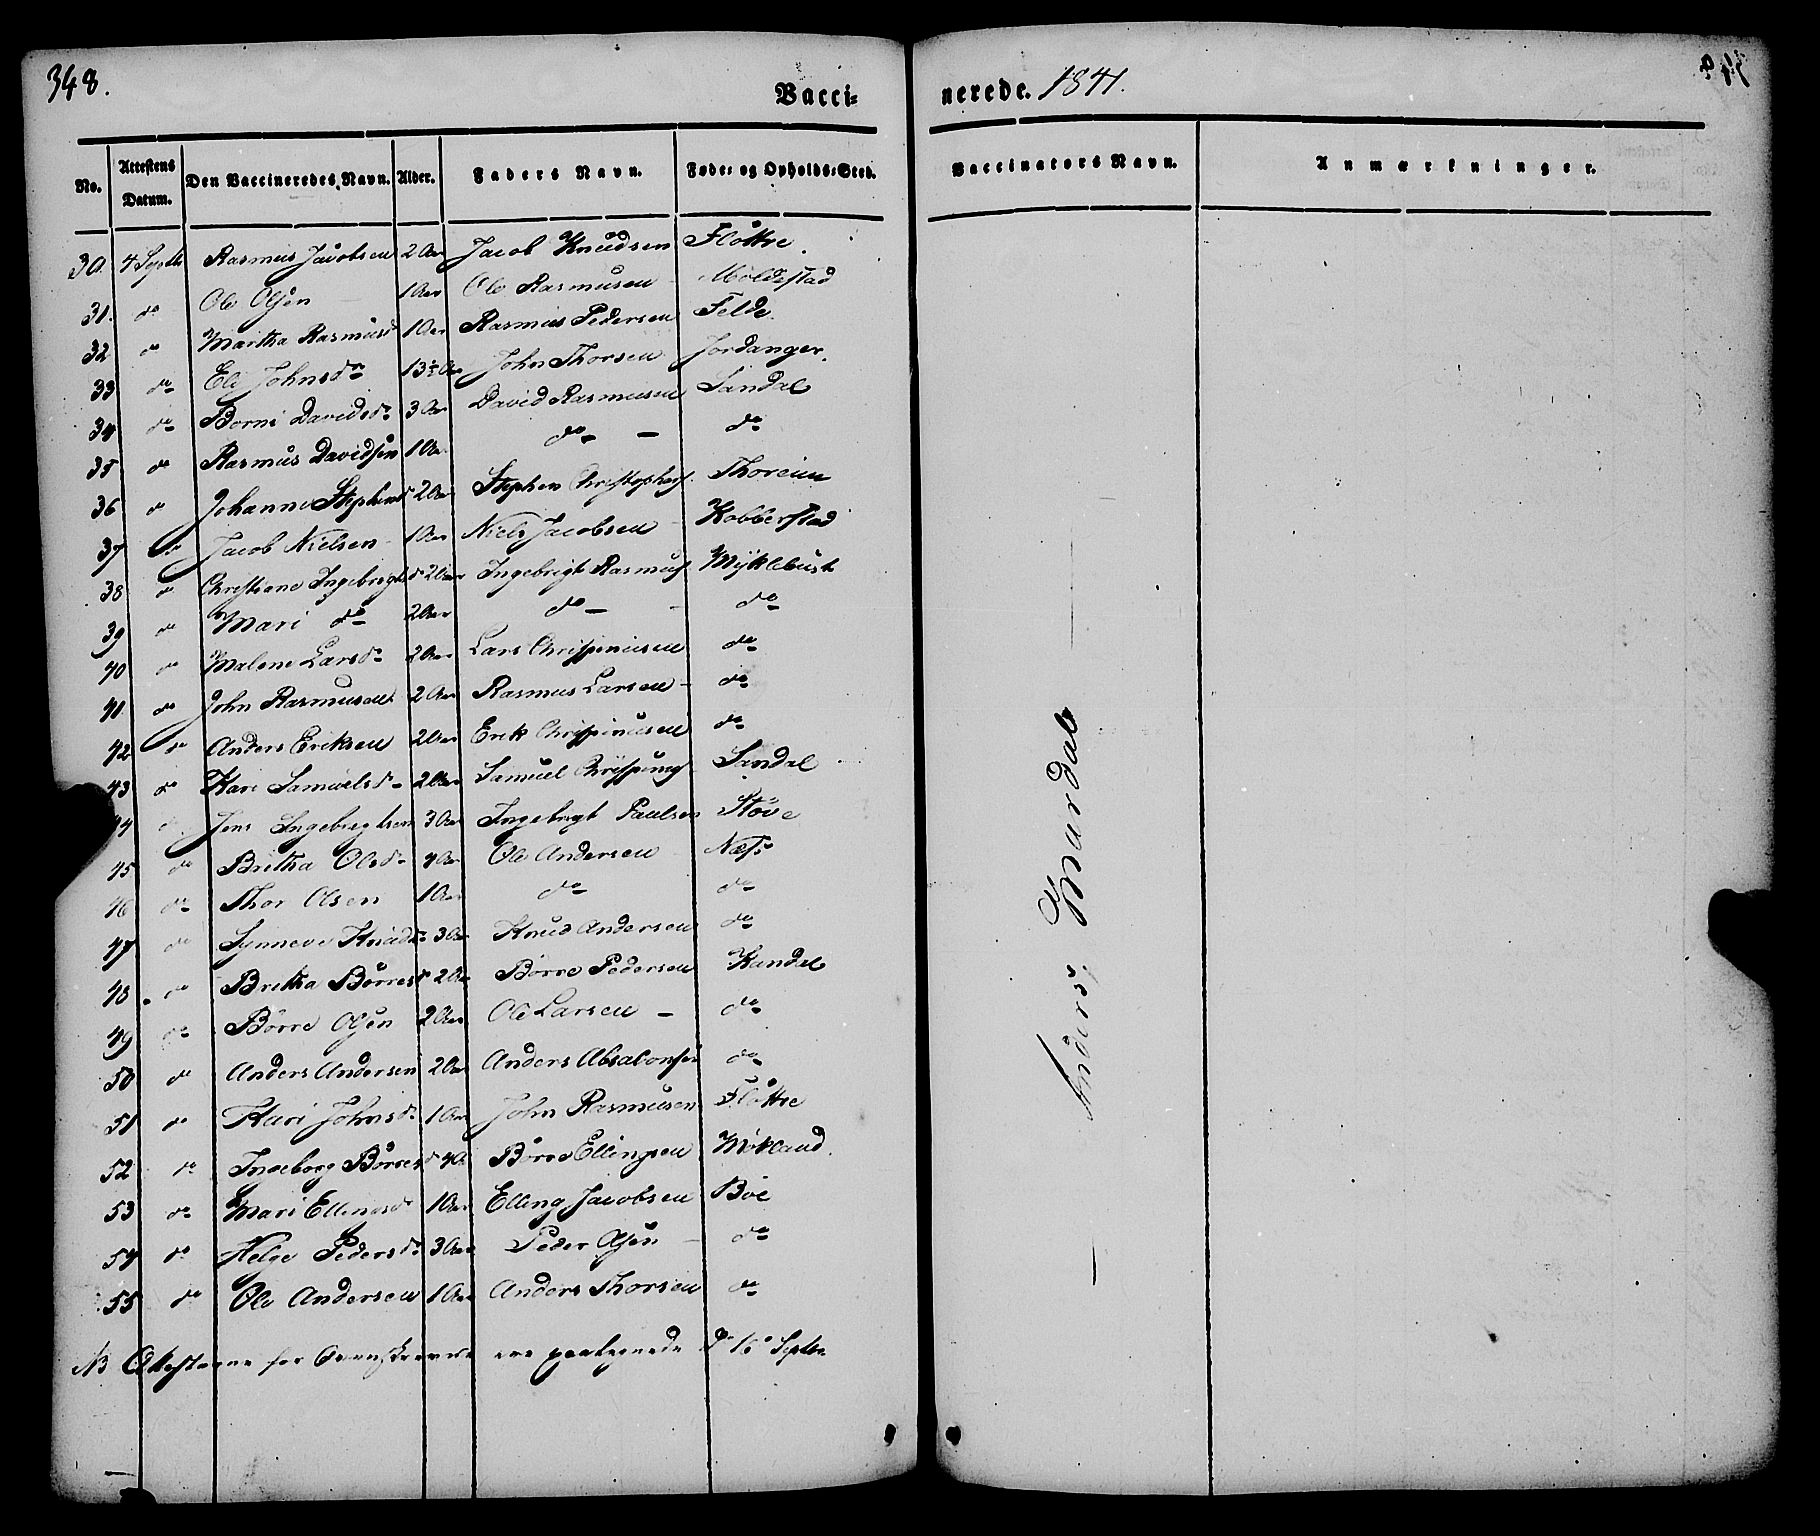 348.
Vacci-
nerede. 1841.
No. Attestens Datum. Den Vaccineredes Navn. Alder. Faders Navn. Føde- og Opholds-Sted. Vaccinators Navn. Anmærkninger.
30. 4 Septb Rasmus Jacobsen 2 Aar Jacob Knudsen Flöttre.
31. do Ole Olsen 1 Aar Ole Rasmusen Möldestad
32 do Martha Rasmusd 1 Aar Rasmus Pedersen Felde.
33 do Eli Johnsdr 13½ Aar John Thorsen Jordanger.
34 do Borni Davidsdr 3 Aar David Rasmusen Sandal
35 do Rasmus Davidsen 1 Aar do - do
36 do Johanne Stephensd 2 Aar Stephen Christophers.
37 do Jacob Nielsen 1 Aar Niels Jacobsen Kobberstad
38 do Christiane Ingebrigtsd 2 Aar Ingebrigt Rasmus Myklebust
39 do Mari do 2 Aar do - do
40 do Malene Larsdr 2 Aar Lars Chrispinusen do
41 do John Rasmusen 2 Aar Rasmus Larsen - do
42 do Anders Eriksen 2 Aar Erik Chrispinusen do
43 do Kari Samuelsdr 2 Aar Samuel Chrispinus Sandal
44 do Jens Ingebrigtsen 3 Aar Ingebrigt Paulsen Stöve
45 do Britha Olsdr 4 Aar Ole Andersen Næss
46 do Thor Olsen 1 Aar do do
47 do Synneve Knudsdr 3 Aar Knud Andersen do
48 do Britha Börresd 2 Aar Börre Pedersen Kandal
49 do Börre Olsen 2 Aar Ole Larsen - do
50 do Anders Andersen 2 Aar Anders Absalonsen do
51 do Kari Johnsdr 1 Aar John Rasmusen Flöttre
52 do Ingeborg Börresd 4 A Börre Ellingsen Mökland.
53 do Mari Ellingsdr 1 Aar Elling Jacobsen Böe
54 do Helge Pedersdr 3 Aar Peder Olsen - do
55 do Ole Andersen 1 Aar Anders Thorsen do
NB Attesterne for Ovenskrevne ere paategnede d 16 Septbr
Anders Maurdal